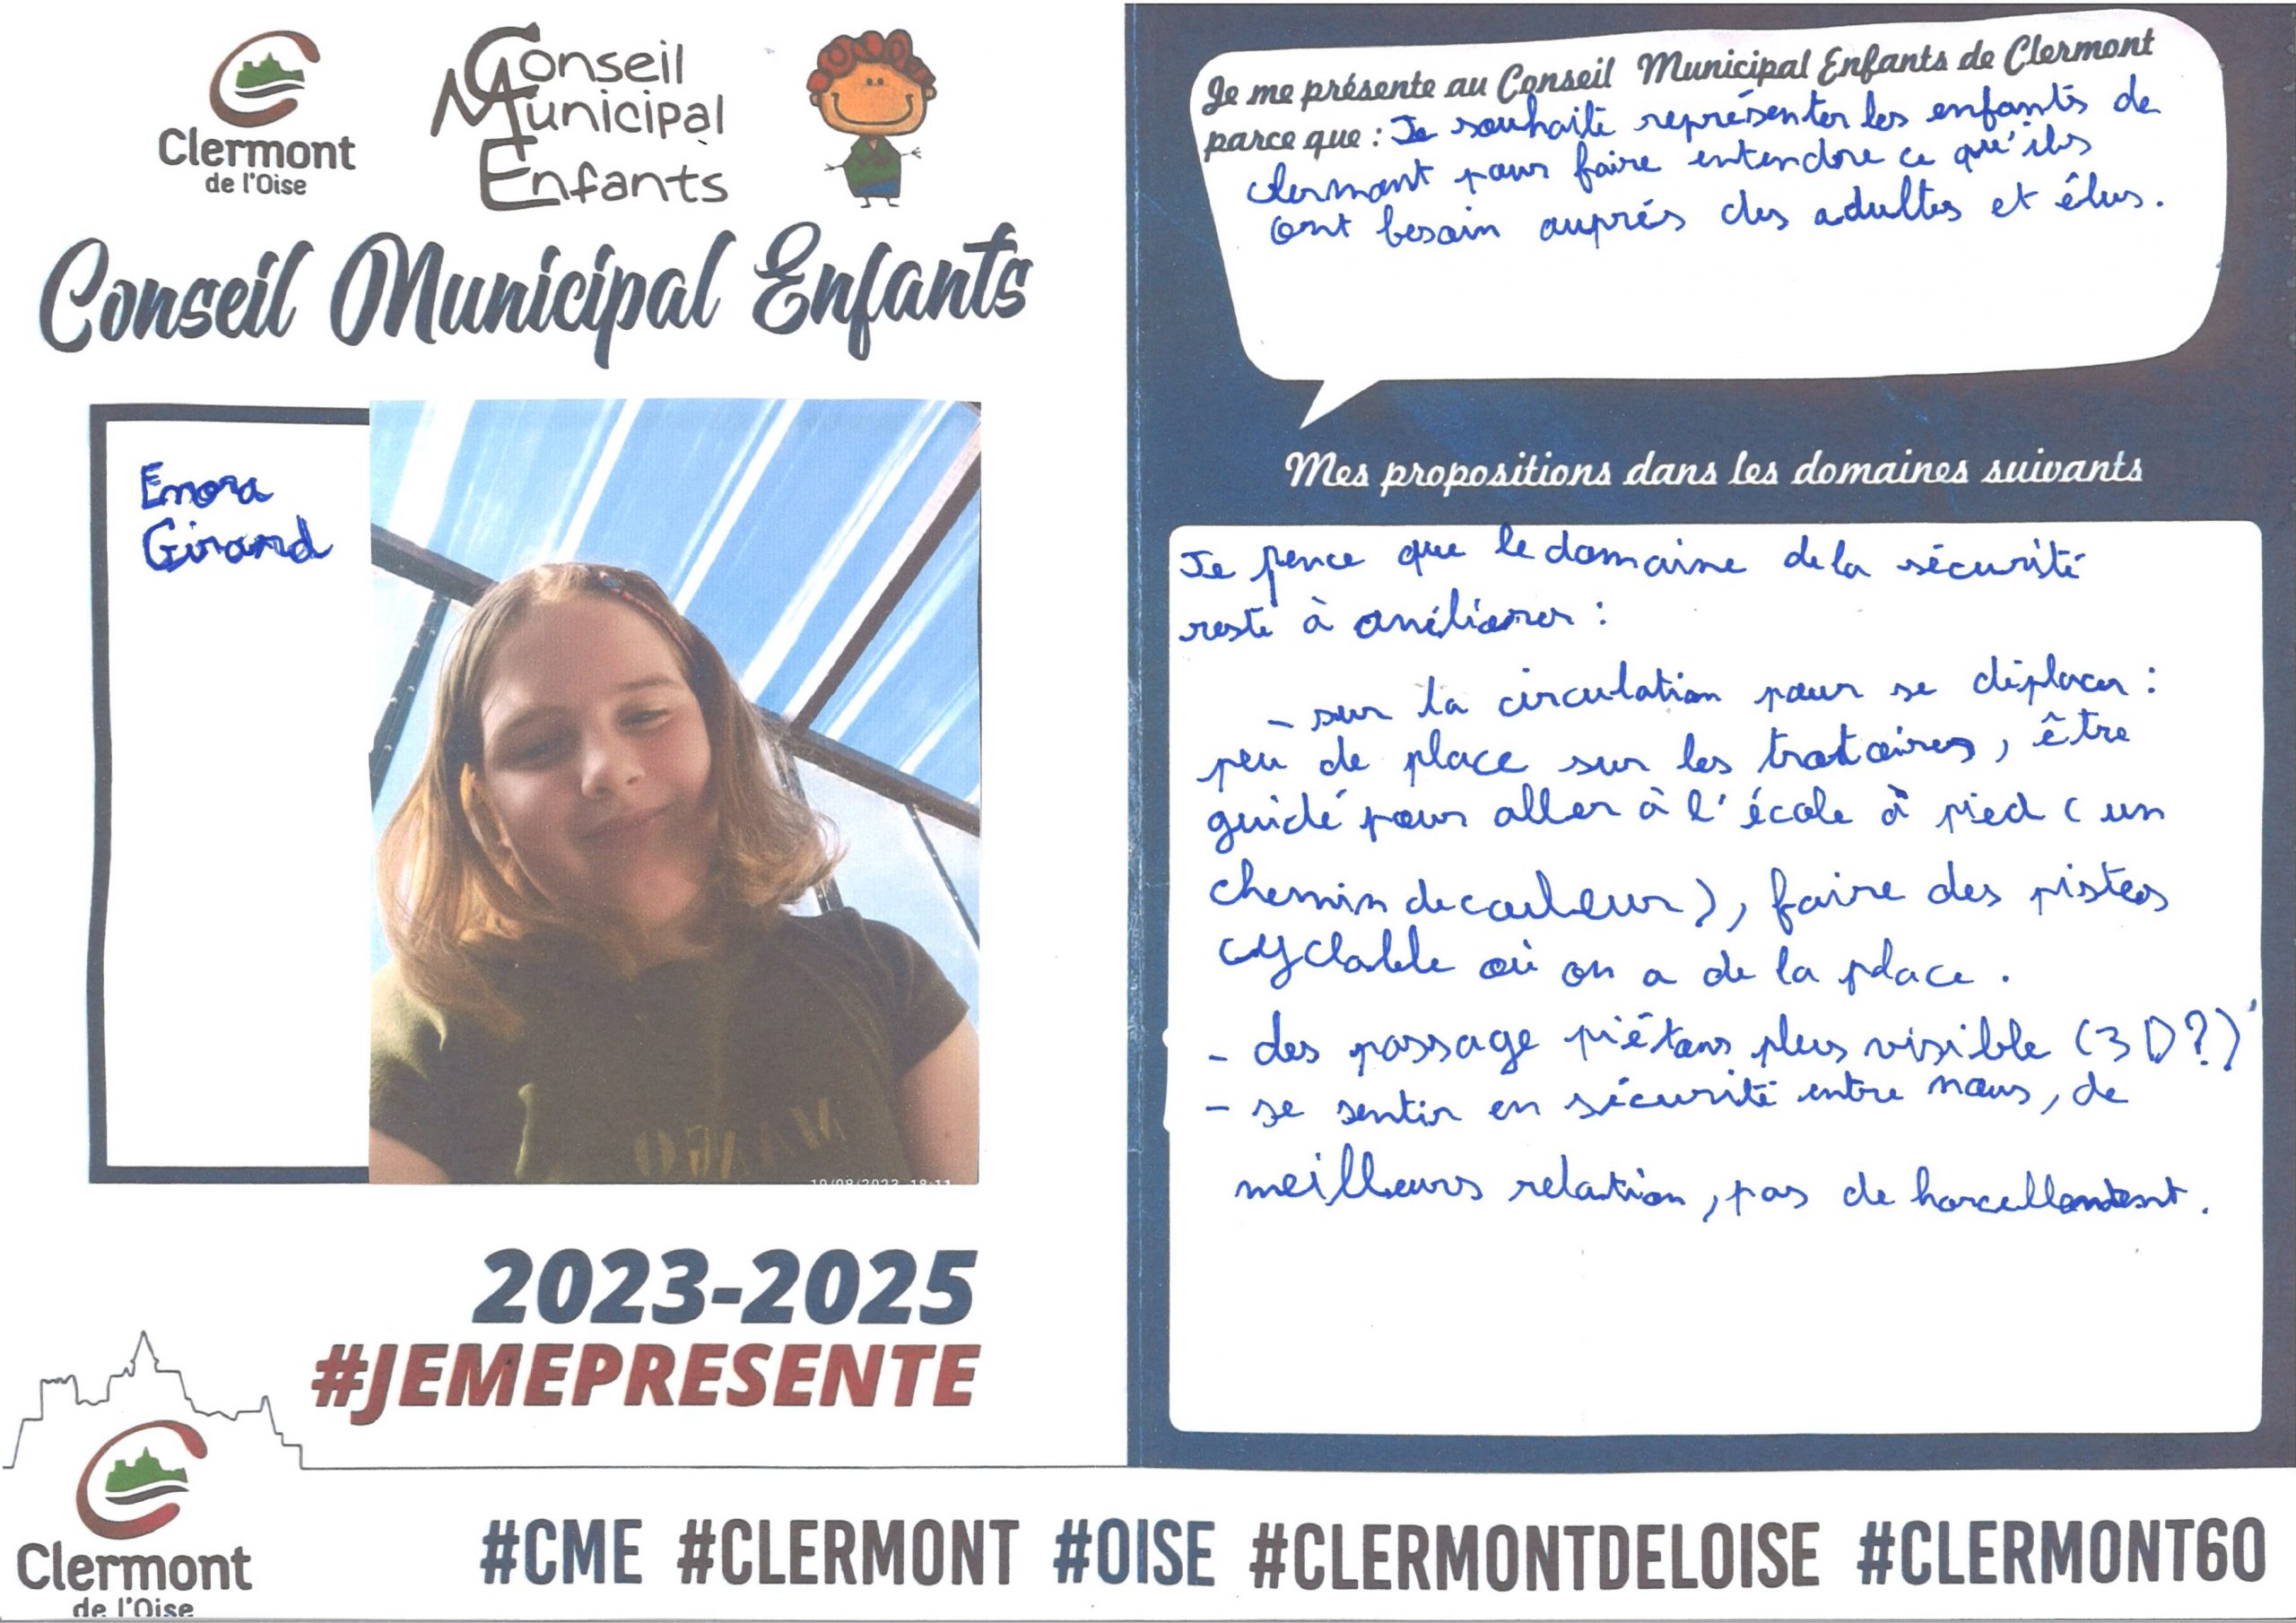 Clermont
de l'Oise
Conseil
Municipal
Enfants
Conseil Municipal Enfants
Enora
Girard
MANGO
19/08/2023 18:11
2023-2025
#JEMEPRESENTE
Clermont
de l'Oise
Je me présente au Conseil Municipal Enfants de Clermont
parce que : Je souhaite représenter les enfants de
clermont pour faire entendre ce qu'ils
ont besoin auprés des adultes et élus.
Mes propositions dans les domaines suivants
Je pence que le domaine de la sécurité
reste à améliorer :
- sur la circulation pour se déplacer :
peu de place sur les trotoires, être
guidé pour aller à l'école à pied (un
chemin de couleur), faire des pistes
cyclable où on a de la place.
- des passage piétons plus visible (3D?)
- se sentir en sécurité entre nous, de
meilleurs relation, pas de harcellement.
#CME #CLERMONT #OISE #CLERMONTDELOISE #CLERMONT60